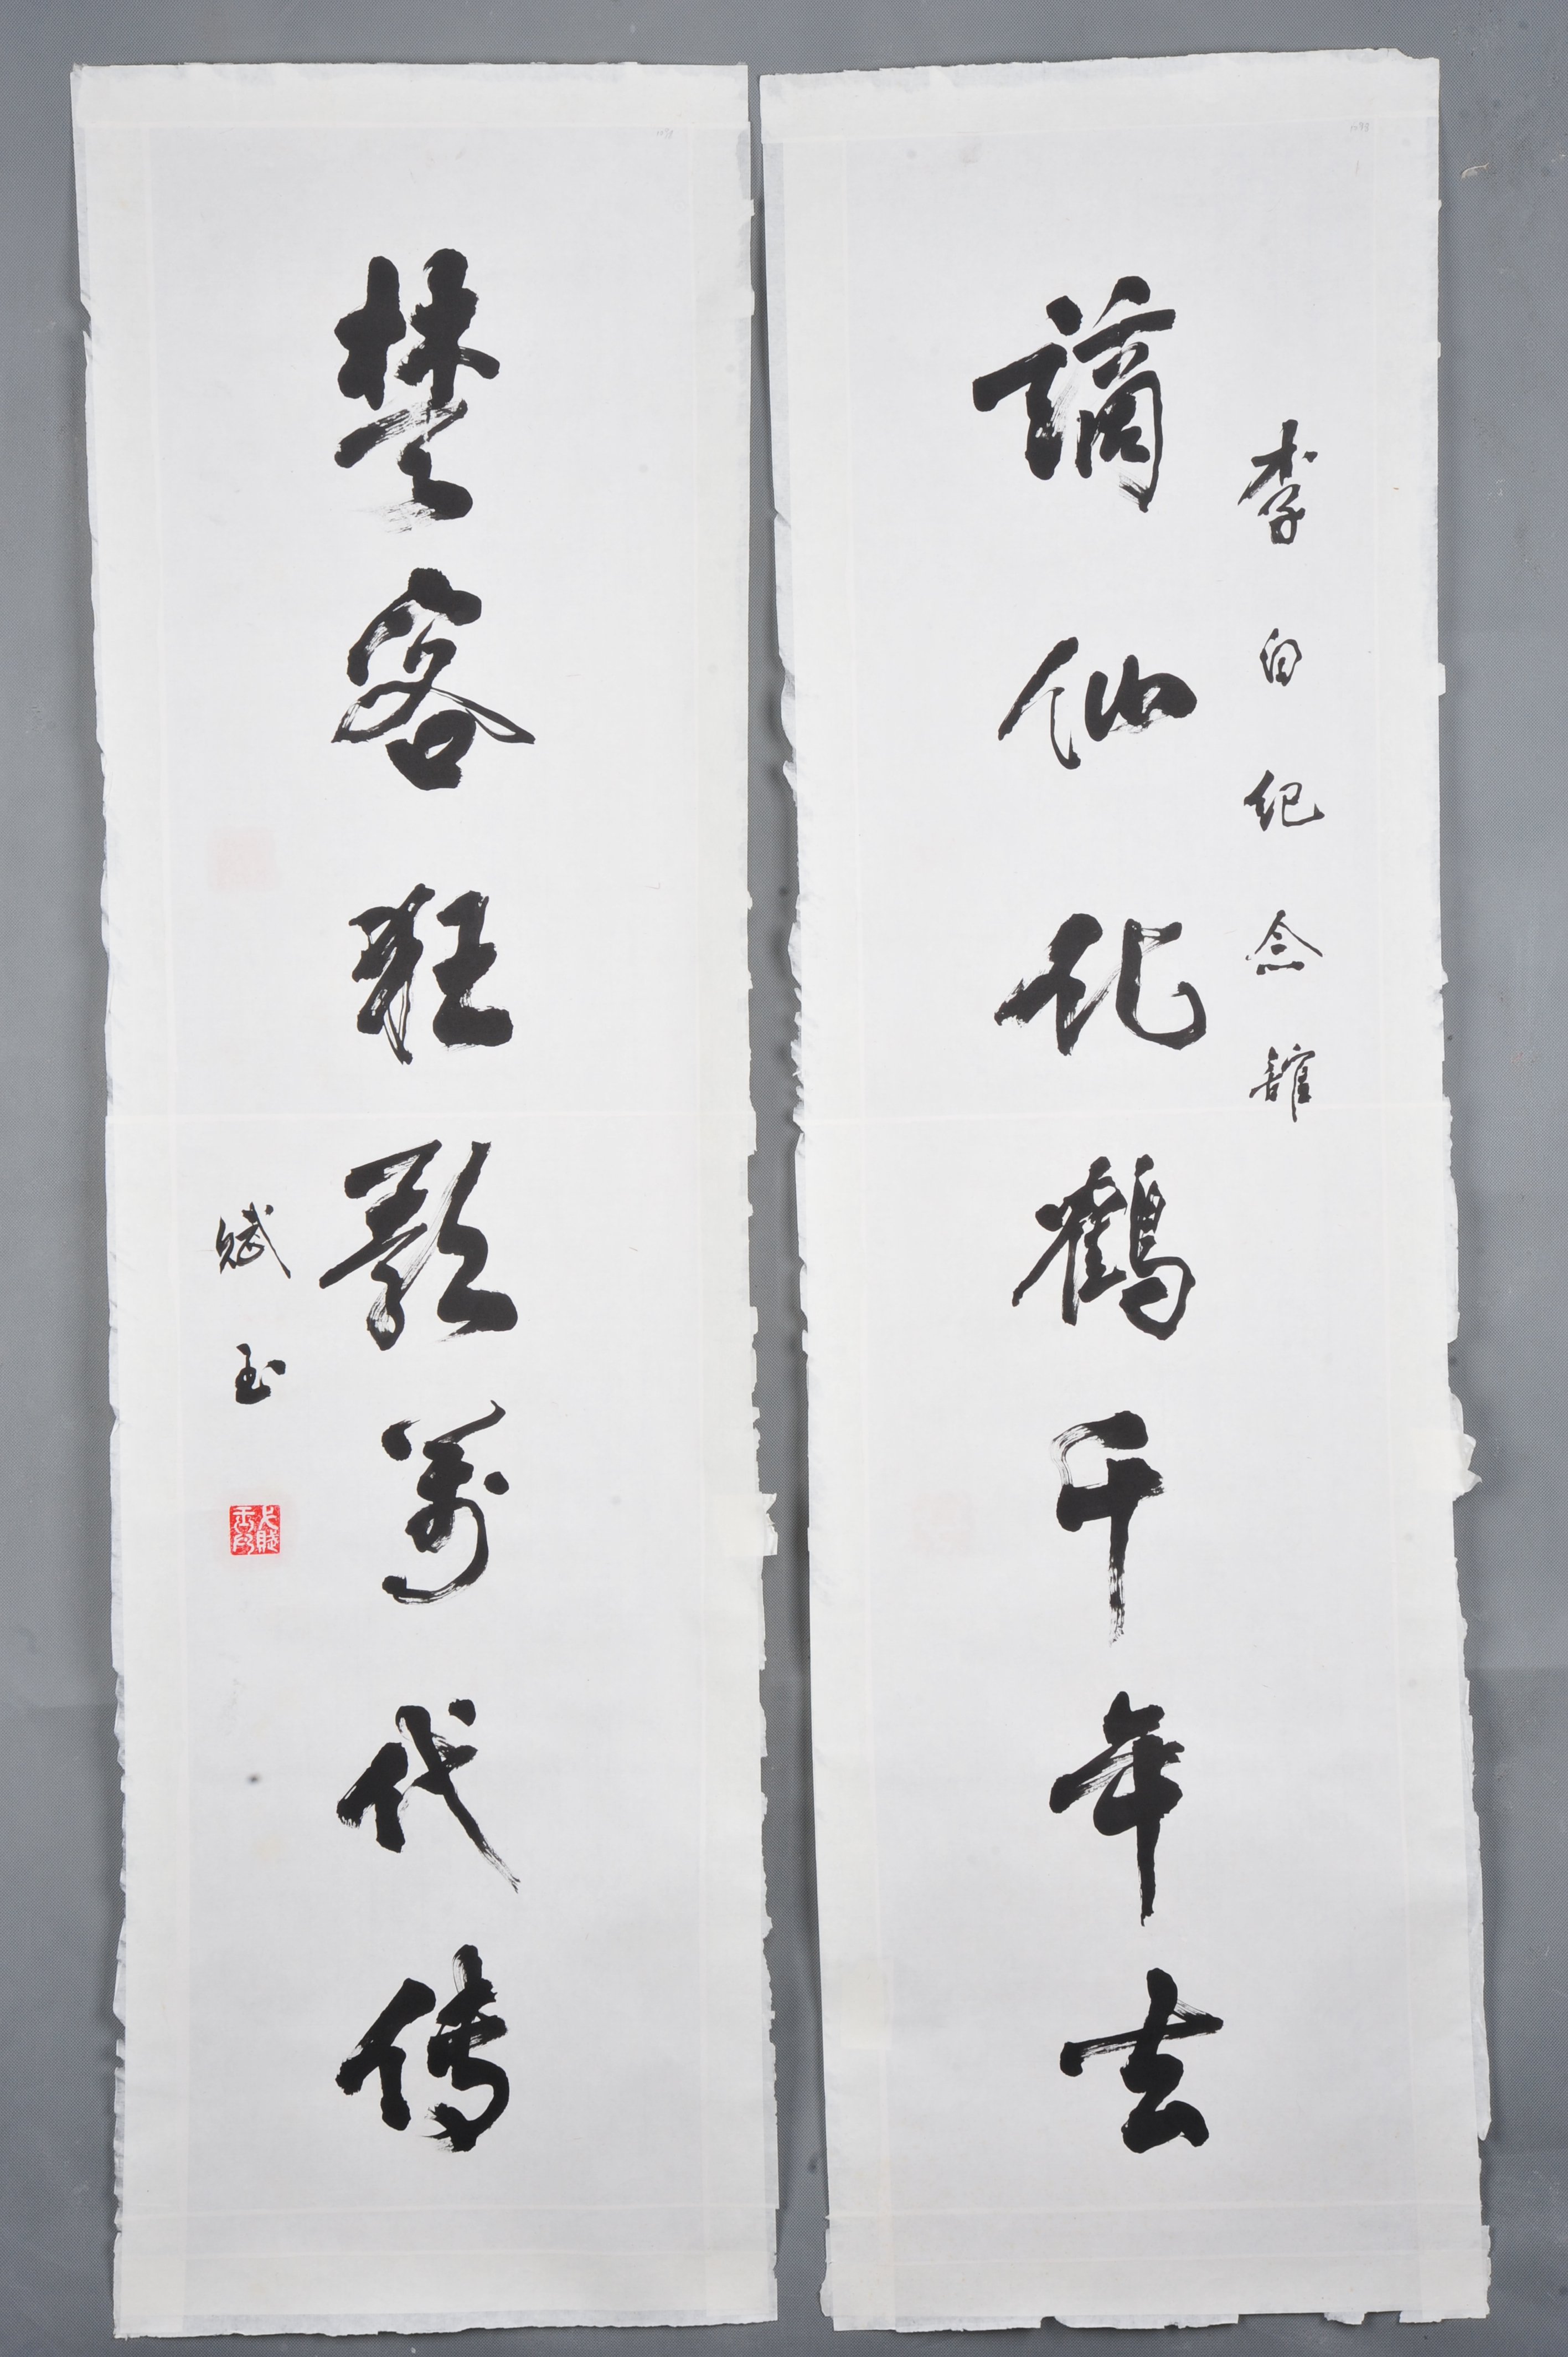 李白纪念館
谪仙化鶴千年去
楚客狂歌萬代傳
赋玉